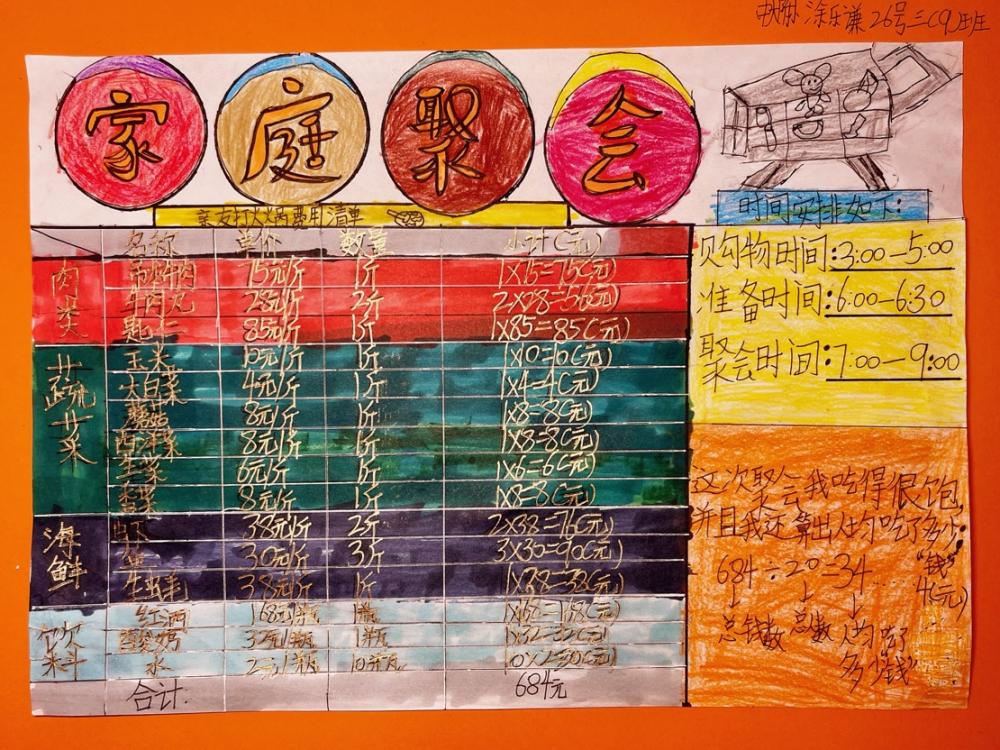 涂乐谦 26号 三(9)班
家庭聚会
亲友打火锅费用清单
时间安排如下:
名称 单价 数量 小计(元)
肉类
75元/斤 1斤 1×75=75(元)
牛肉丸 28元/斤 2斤 2×28=56(元)
85元/斤 1斤 1×85=85(元)
蔬菜
玉米 10元/斤 1斤 1×10=10(元)
大白菜 4元/斤 1斤 1×4=4(元)
蘑菇 8元/斤 1斤 1×8=8(元)
西洋菜 8元/斤 1斤 1×8=8(元)
生菜 6元/斤 1斤 1×6=6(元)
8元/斤 1斤 1×8=8(元)
海鲜
虾 38元/斤 2斤 2×38=76(元)
鱼 30元/斤 3斤 3×30=90(元)
生蚝 38元/斤 1斤 1×38=38(元)
饮料
红酒 168元/瓶 1瓶 1×168=168(元)
酸奶 32元/瓶 1瓶 1×32=32(元)
水 2元/瓶 10瓶 10×2=20(元)
合计. 684元
购物时间:3:00—5:00
准备时间:6:00—6:30
聚会时间:7:00—9:00
这次聚会我吃得很饱,
并且我还算出人均吃了多少
“钱”
684÷20=34
4(元)
总钱数 总数 人均吃了
多少钱”